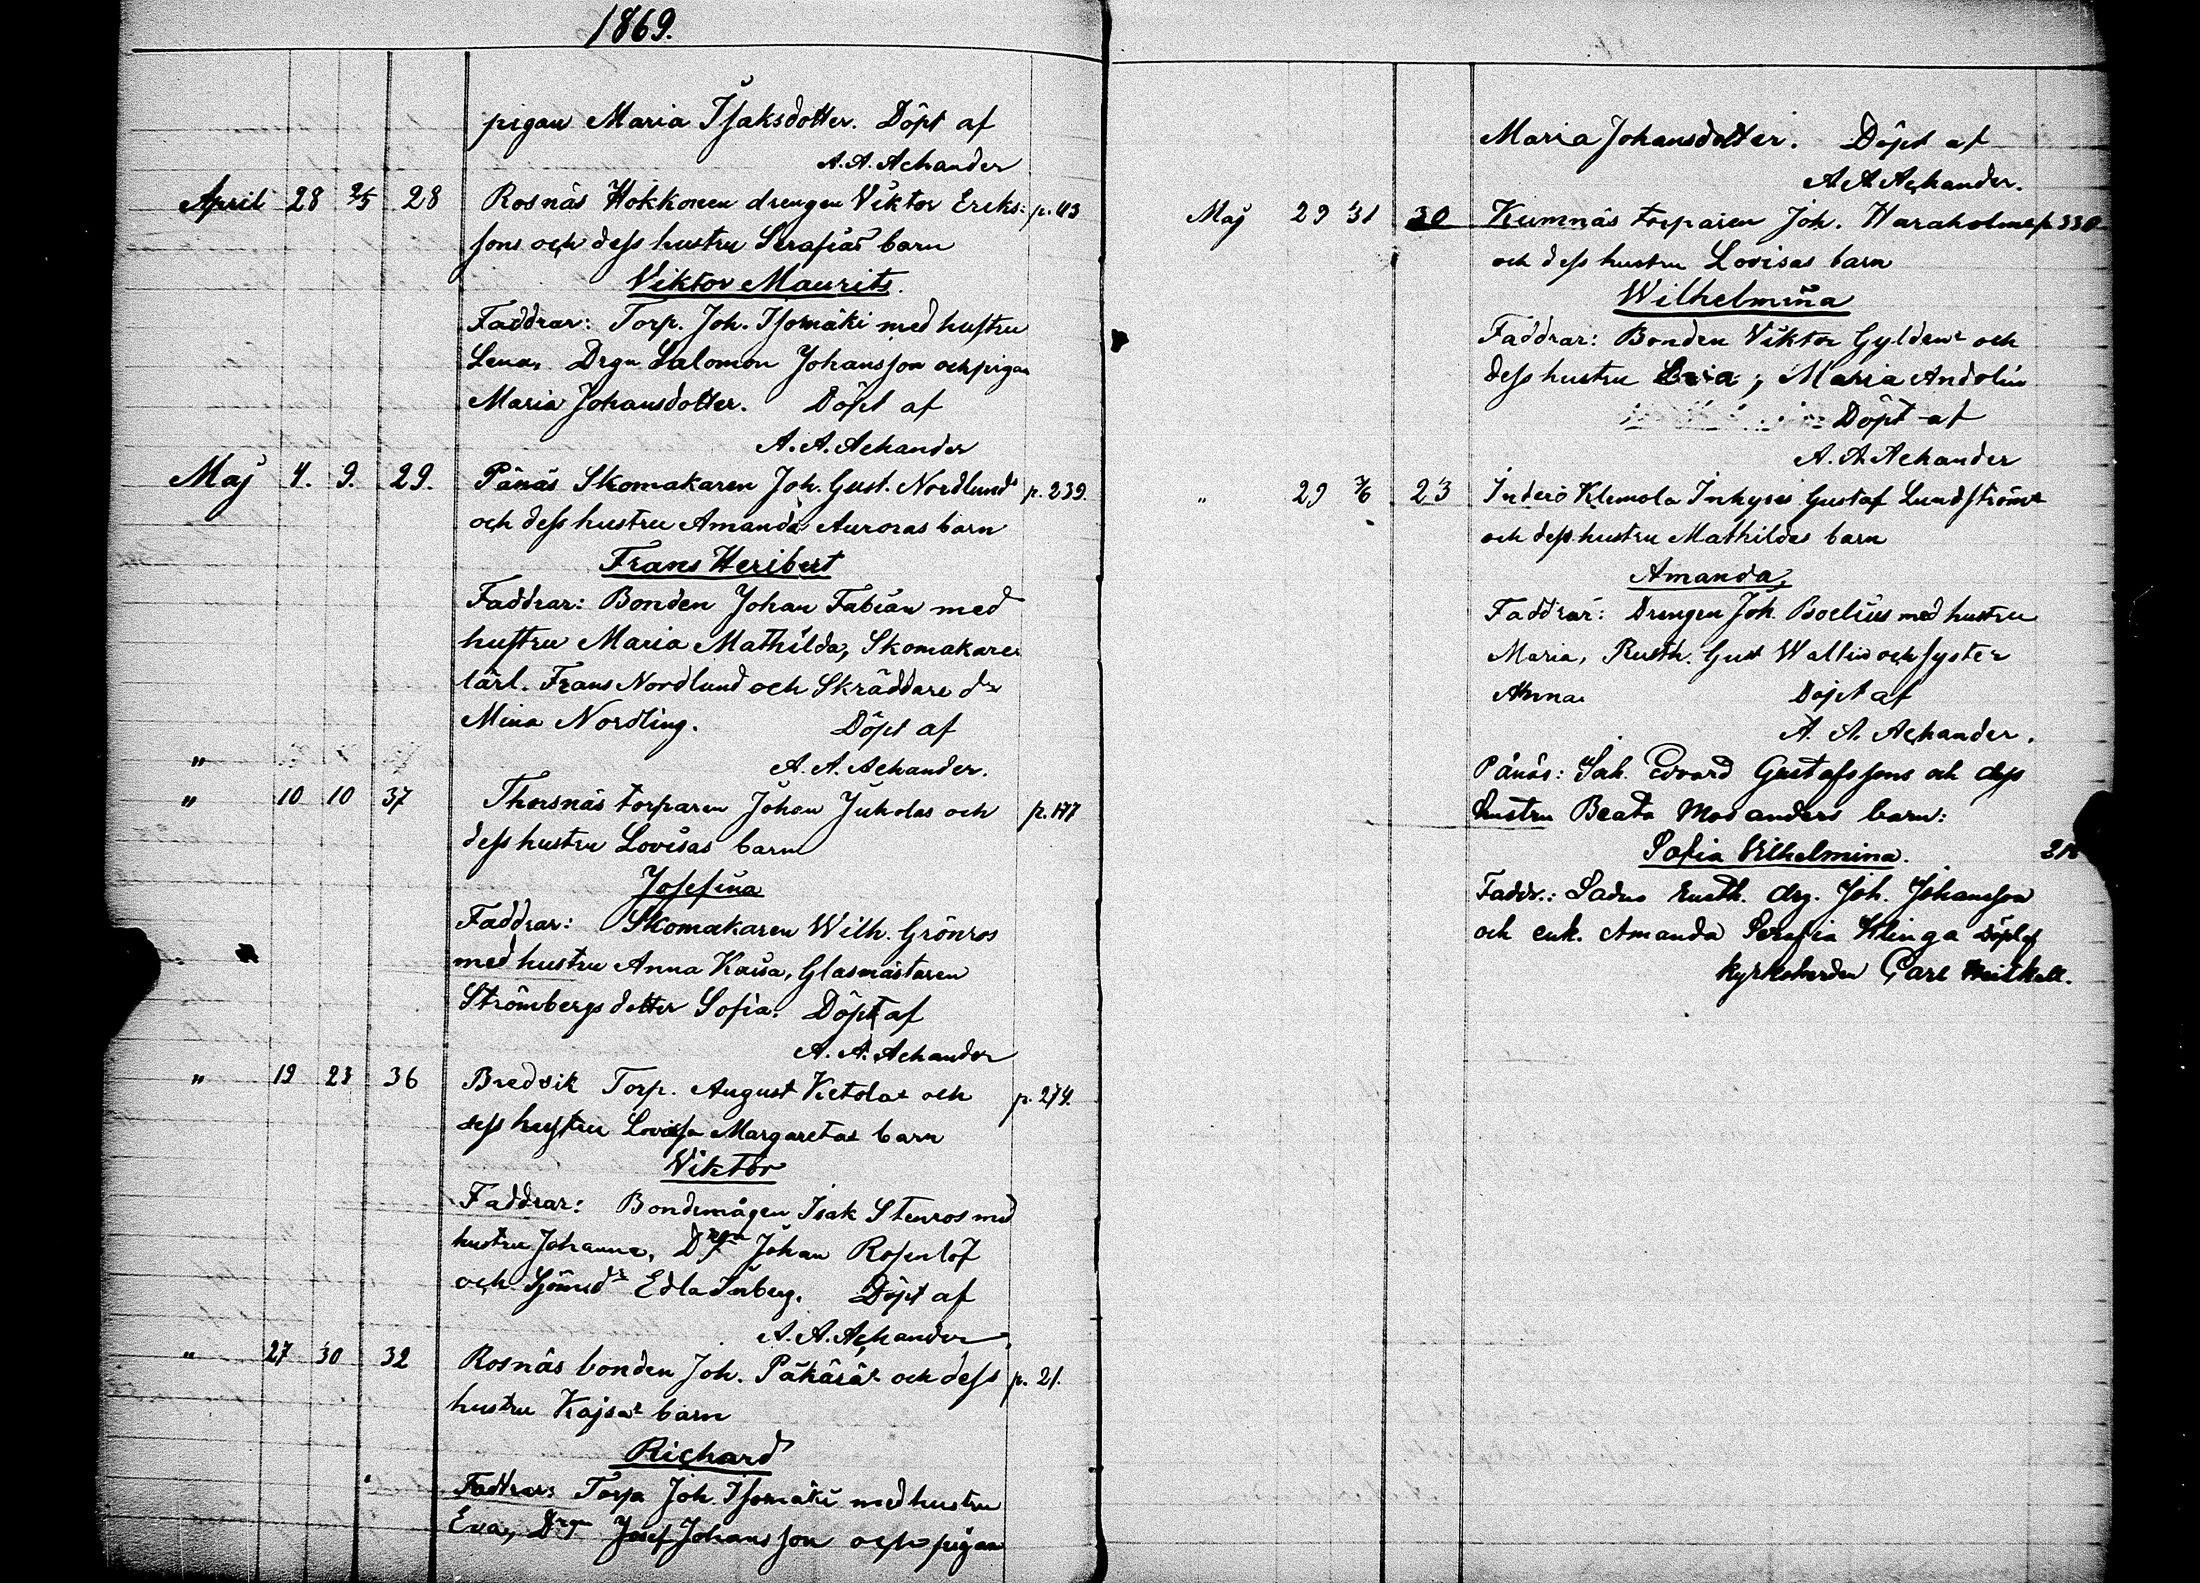 1869.
pigan Maria Isaksdotter. Döpt af
A. A. Achander
April 28 2/5 28 Rosnäs Hokkonen drengen Viktor Eriks- p. 43
sons och dess hustru Serafias barn
Viktor Maurits.
Faddrar: Torp. Joh. Isomäki med hustru
Lena, Drgn Salomon Johansson och pigan
Maria Johansdotter. Döpt af
A. A. Achander
Maj 4. 9. 29. Pånäs Skomakaren Joh. Gust. Nordlunds p. 239.
och dess hustru Amanda Auroras barn
Frans Heribert
Faddrar: Bonden Johan Fabian med
hustru Maria Mathilda, Skomakare
lärl. Frans Nordlund och Skräddare dr
Mina Nordling. Döpt af
"
A. A. Achander.
" 10 10 37 Thorsnäs torparen Johan Juholas och p. 177
dess hustru Lovisas barn
Josefina
Faddrar: Skomakaren Wilh. Grönros
med hustru Anna Kaisa, Glasmästaren
Strömbergs dotter Sofia. Döpt af
A. A. Achander
" 19 23 36 Bredvik Torp. August Ketolas och p. 274.
dess hustru Lovisa Margaretas barn
Viktor
Faddrar: Bondemågen Isak Stenros med
hustru Johanna, Drgn Johan Rosenlöf
och Sjömsdr Edla Inberg. Döpt af
A. A. Achander
" 27 30 32 Rosnäs bonden Joh. Päkäräs och dess p. 21.
hustru Kajsas barn
Richard
Faddrar: Torp Joh. Isomäki med hustru
Eva, Drg Josef Johansson och pigan
Maria Johansdotter. Döpt af
A A Achander.
Maj 29 31 30 Kumnäs torparen Joh. Haraholms p. 330
och dess hustru Lovisas barn
Wilhelmina
Faddrar: Bonden Viktor Gyldens och
dess hustru Eva, Maria Andolin
Döpt af
A. A. Achander
" 29 7/6 23 Inderö Klemola Inhyses Gustaf Lundströms
och dess hustru Mathildas barn
Amanda,
Faddrar: Drengen Joh. Boelius med hustru
Maria, Rusth. Gust Wallin och syster
Anna. Döpt af
A. A. Achander.
Pånäs: Joh. Edvard Gustafssons och dess
hustru Beata Modanders barn:
Sofia Vilhelmina. 21
Faddr.: Sadus rusth. drg. Joh. Johansson
och enk. Amanda Serafia Hlinga Döpt af
kyrkoherden Carl